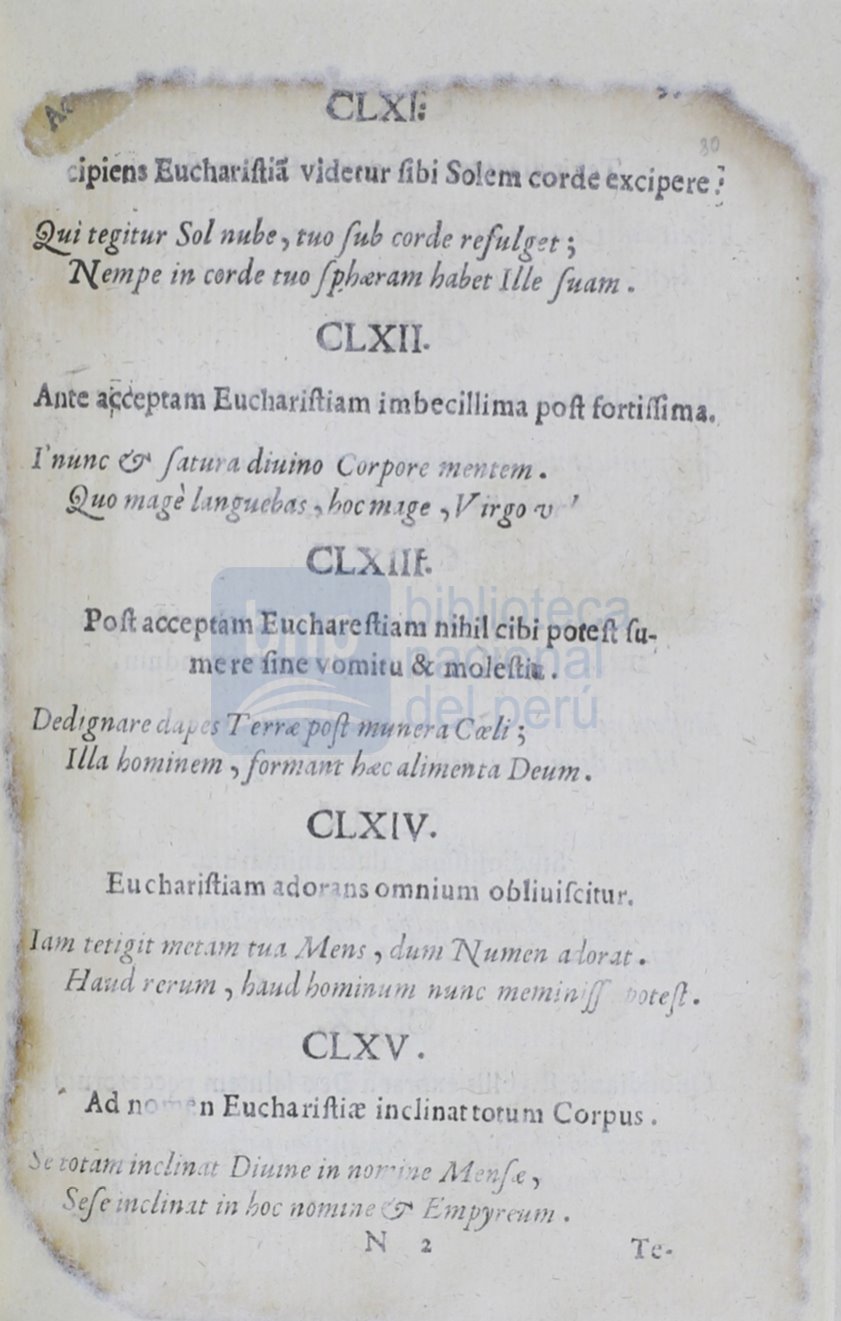 CLXI:
cipiens Euchariſtiã videtur ſibi Solem corde excipere:
Qui tegitur Sol nube, tuo ſub corde reſulget;
Nempe in corde tuo ſphæram habet Ille ſuam.
CLXII.
Ante acceptam Euchariſtiam imbecillima poſt fortiſſima.
I nunc & ſatura diuino Corpore mentem.
Quo magè languebas, hoc mage, Virgo
CLXIII.
Poſt acceptam Euchareſtiam nihil cibi poteſt ſu-
mere ſine vomitu & moleſtia.
Dedignare dapes Terræ poſt munera Cœli;
Illa hominem, formant hæc alimenta Deum.
CLXIV.
Euchariſtiam adorans omnium obliuiſcitur.
Iam tetigit metam tua Mens, dum Numen adorat.
Haud rerum, haud hominum nunc meminiſſ poteſt.
CLXV.
Ad nomen Euchariſtiæ inclinat totum Corpus.
Se totam inclinat Diuine in nomine Menſæ,
Seſe inclinat in hoc nomine & Empyreum.
N 2
Te-
80
bnp biblioteca
nacional
del perú